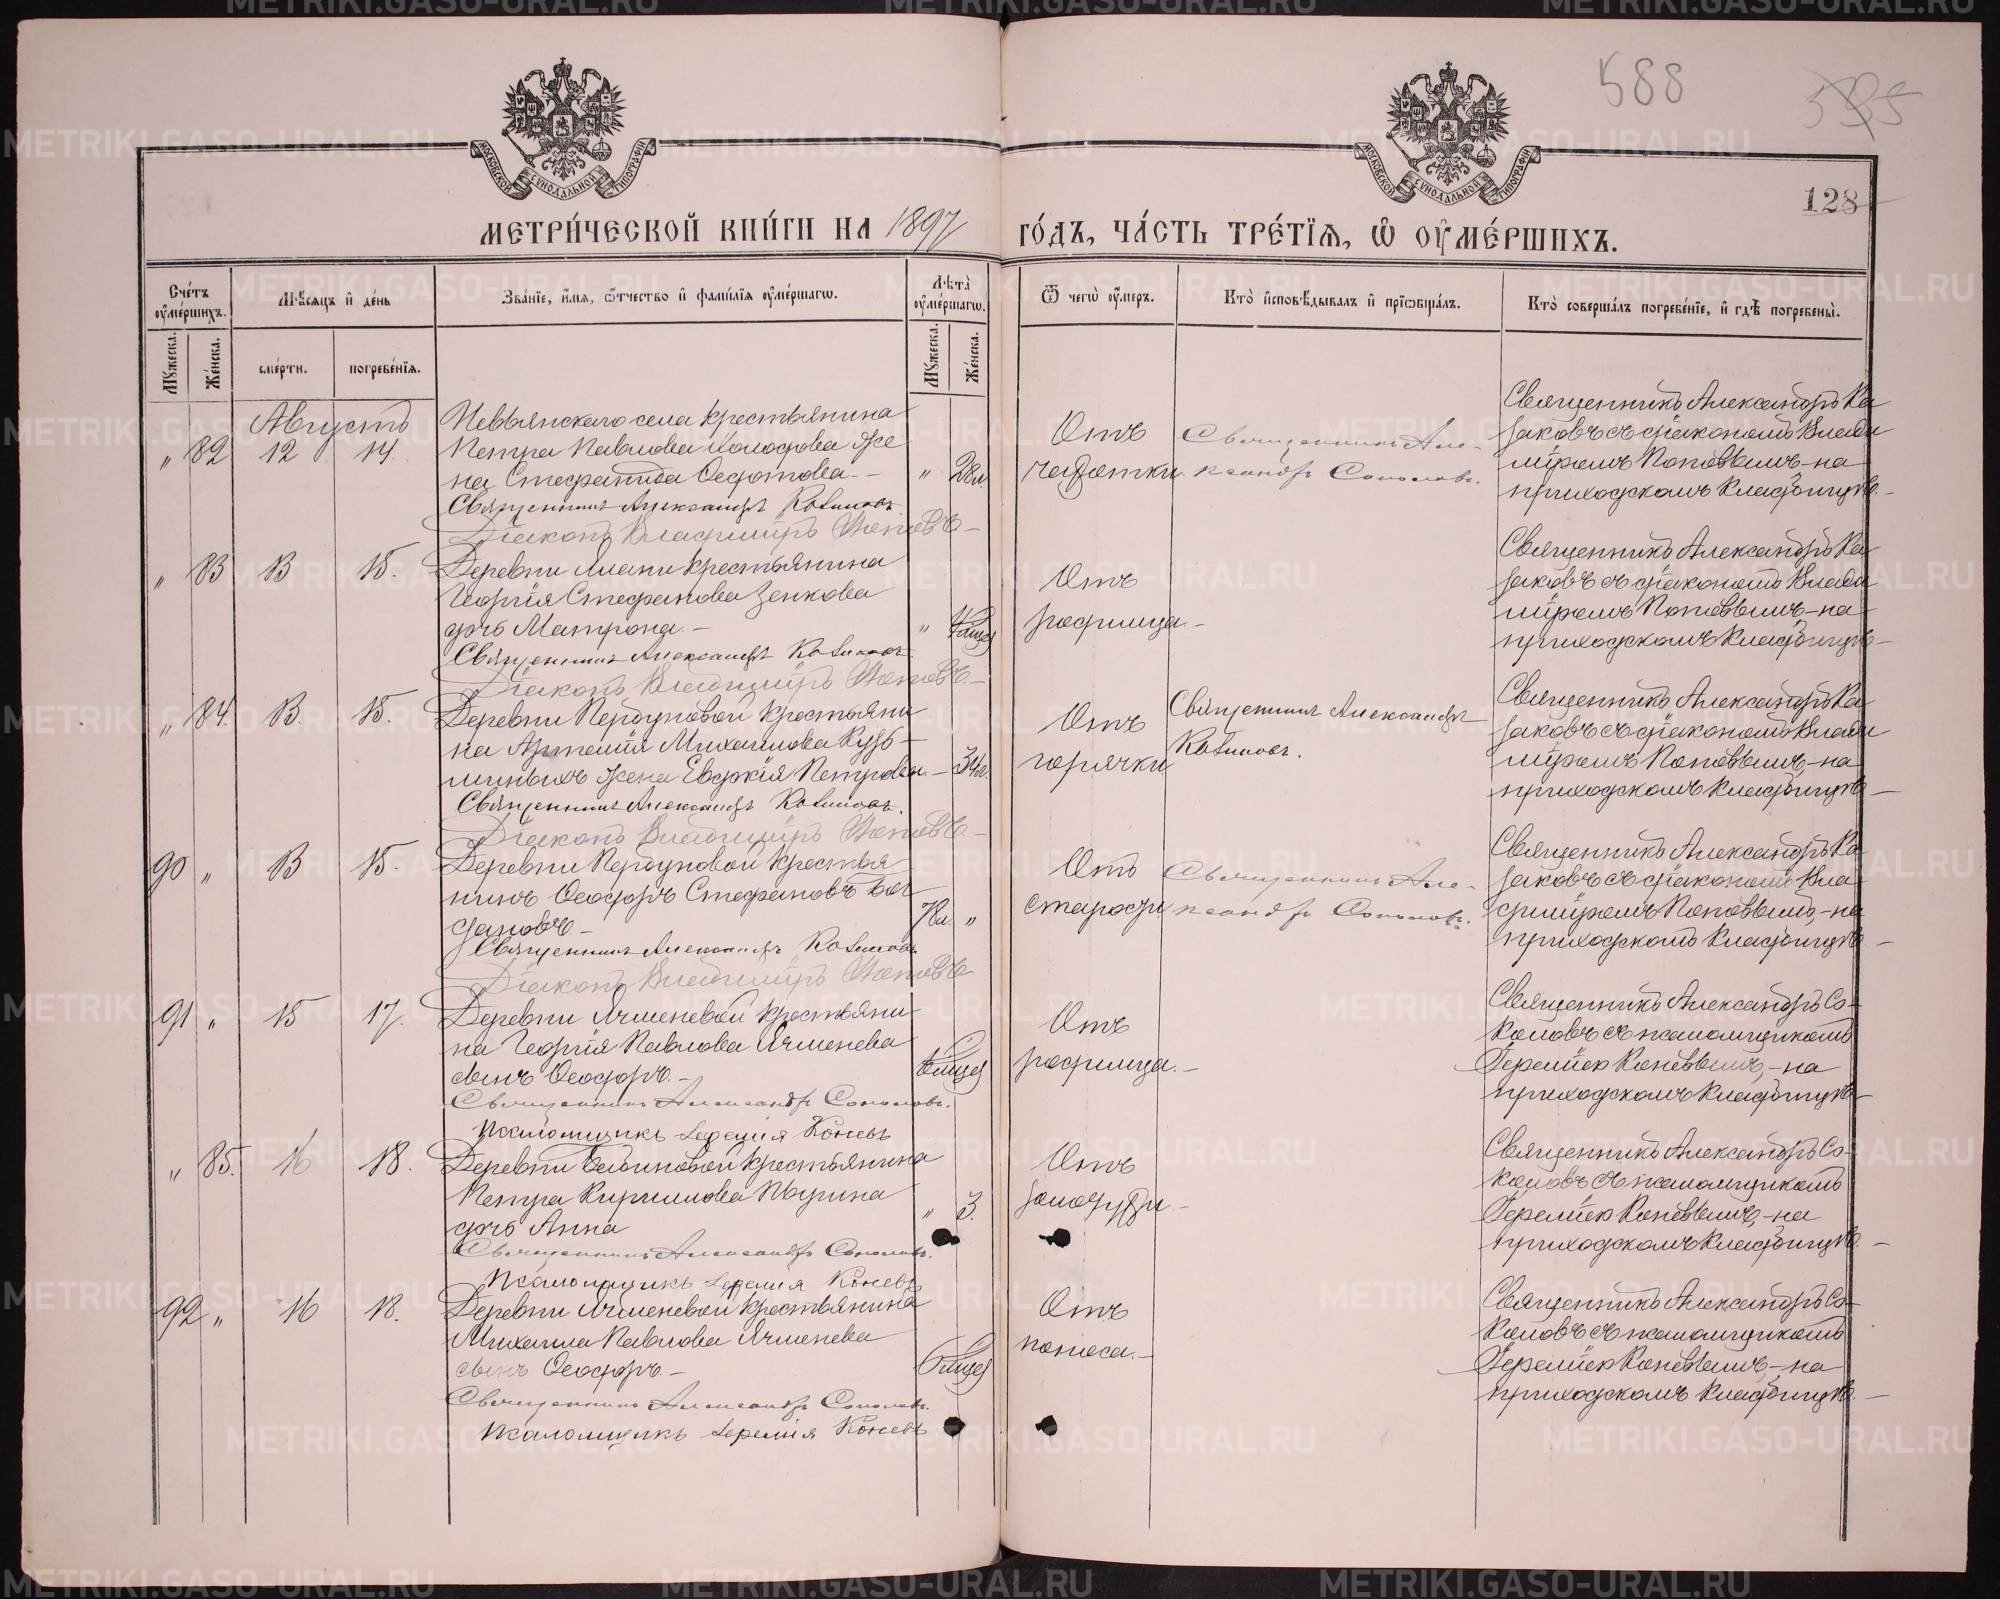 588
585
128
МЕТРИ́ЧЕСКОЙ КНИ́ГИ НА 1897 ГО́ДЪ, ЧА́СТЬ ТРЕ́ТІЯ, Ѡ ОУ҆МЕ́РШИХЪ.
Сче́тъ оу҆ме́ршихъ.
Мꙋ́жеска.
Же́нска.
Мѣ́сяцъ и҆ де́нь
сме́рти.
погребе́нїя.
Зва́нїе, и҆́мя, ѻ҆́тчество и҆ фами́лїя оу҆ме́ршагѡ.
Лѣ́та оу҆ме́ршагѡ.
Мꙋ́жеска.
Же́нска.
Ѿ чегѡ̀ оу҆́меръ.
Кто̀ и҆сповѣ́дывалъ и҆ прїѡбща́лъ.
Кто̀ соверша́лъ погребе́нїе, и҆ гдѣ̀ погребены̀.
Августъ
" 82 12 14.
Невьянскаго села крестьянина
Петра Павлова Же
на Стефанида Ѳедотова.
Священникъ Александръ
Діаконъ Владиміръ Поповъ
" 28 л.
Отъ
чахотки.
Священникъ Але-
ксандръ Соколовъ.
Священникъ Александръ
съ діакономъ Влади
міромъ Поповымъ, на
приходскомъ кладбищѣ.
" 83 13 15.
Деревни крестьянина
Георгія Стефанова Зенкова
дчь Матрона.
Священникъ Александръ
Діаконъ Владиміръ Поповъ
"
Отъ
родимца.
Священникъ Александръ
съ діакономъ Влади
міромъ Поповымъ, на
приходскомъ кладбищѣ
" 84. 13. 15.
Деревни Пердуновой крестьяни
на Артемія Михаилова Кузь-
миныхъ жена Евдокія Петрова.
Священникъ Александръ
Діаконъ Владиміръ Поповъ
34 л.
Отъ
горячки
Священникъ Александръ
Священникъ Александръ
съ діакономъ Влади
міромъ Поповымъ, на
приходскомъ кладбищѣ
90 " 13 15.
Деревни Пердуновой крестья
нинъ Ѳеодоръ Стефановъ Бог
дановъ
Священникъ Александръ
Діаконъ Владиміръ Поповъ
78 л. "
Отъ
старости
Священникъ Але-
ксандръ Соколовъ.
Священникъ Александръ
съ діакономъ Вла-
диміромъ Поповымъ, на
приходскомъ кладбищѣ
91 " 15 17.
Деревни Ячменевой крестьяни
на Георгія Павлова Ячменева
сынъ Ѳеодоръ.
Священникъ Александръ Соколовъ.
Псаломщикъ Іеремія Коневъ
Отъ
родимца.
Священникъ Александръ Со-
коловъ съ псаломщикомъ
Іереміею Коневымъ, на
приходскомъ кладбищѣ
" 85. 16 18.
Деревни крестьянина
Петра Кириллова
дчь Анна
Священникъ Александръ Соколовъ.
Псаломщикъ Іеремія Коневъ
" 3.
Отъ
золотухи
Священникъ Александръ Со-
коловъ съ псаломщикомъ
Іереміею Коневымъ, на
приходскомъ кладбищѣ.
92 " 16 18.
Деревни Ячменевой крестьянина
Михаила Павлова Ячменева
сынъ Ѳеодоръ.
Священникъ Александръ Соколовъ.
Псаломщикъ Іеремія Коневъ
Отъ
поноса.
Священникъ Александръ Со-
коловъ съ псаломщикомъ
Іереміею Коневымъ, на
приходскомъ кладбищѣ.
METRIKI.GASO-URAL.RU